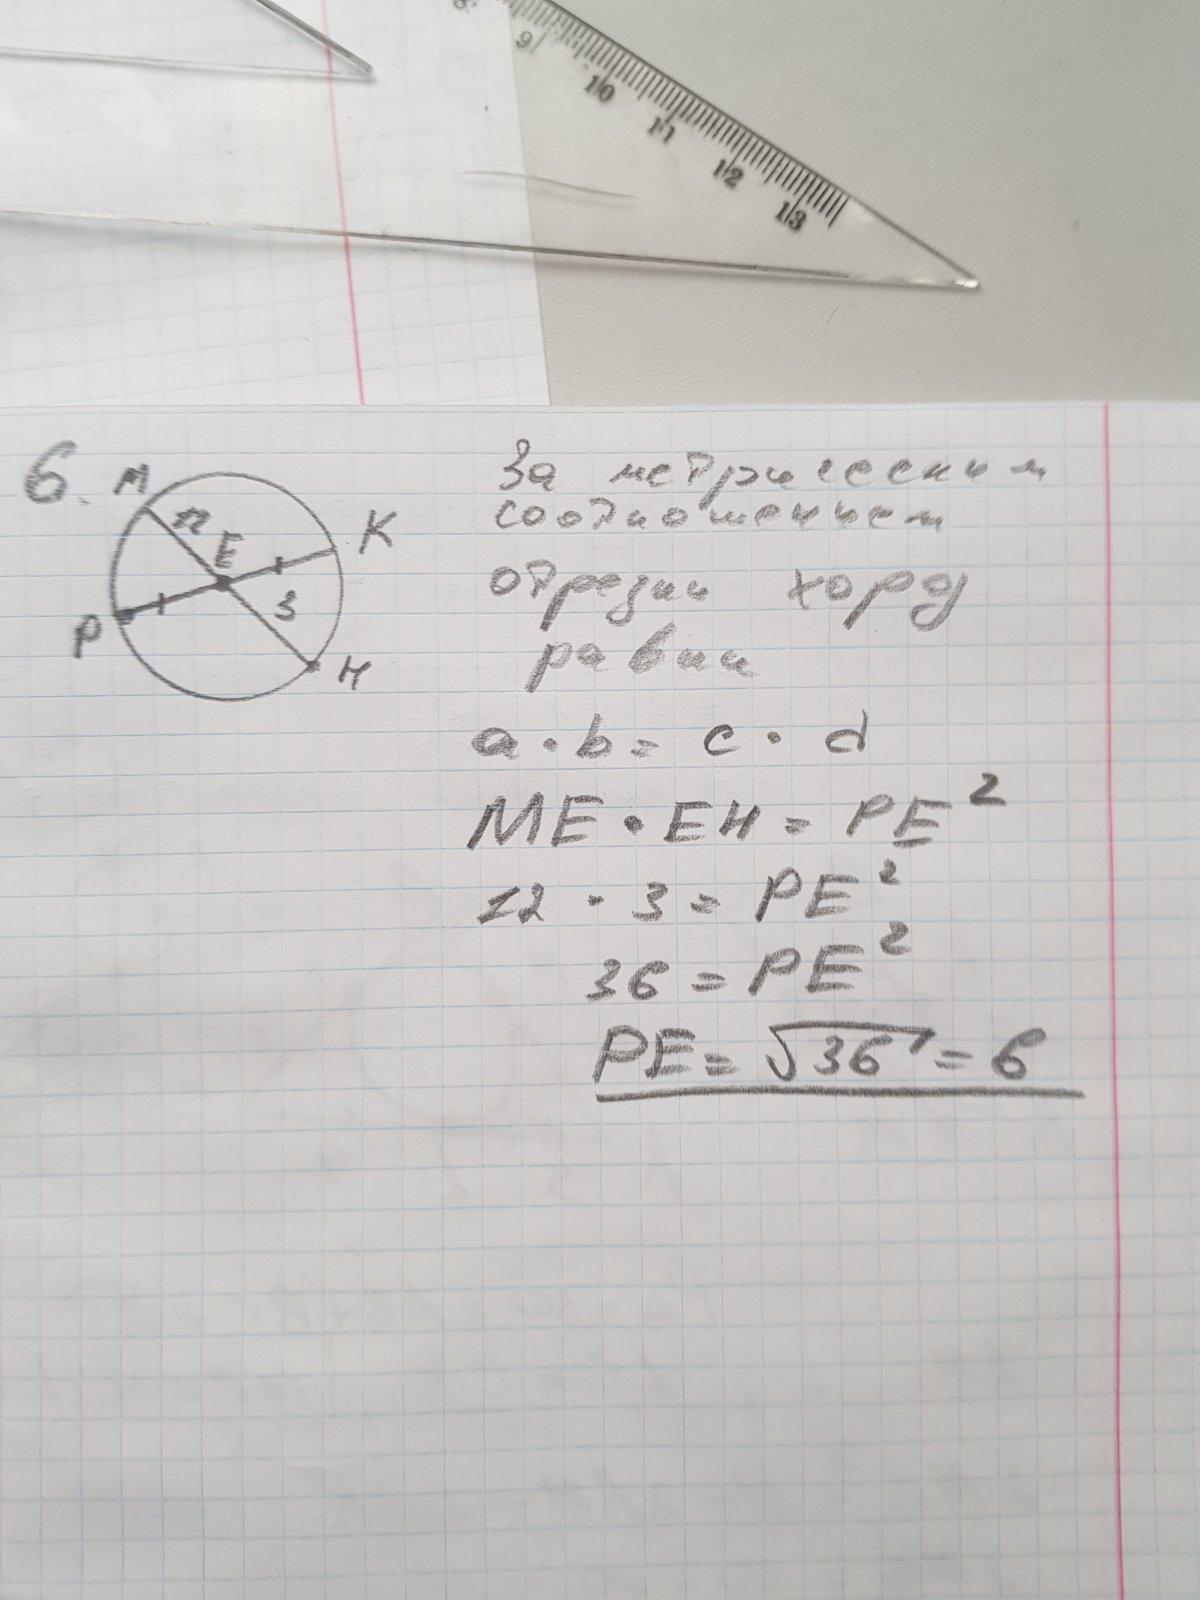 8
9
10
11
12
13
6.
M
12
E
K
3
P
H
За метрическим
соотношением
отрезки хорд
равны
a · b = c · d
ME · EH = PE²
12 · 3 = PE²
36 = PE²
PE = √36 = 6